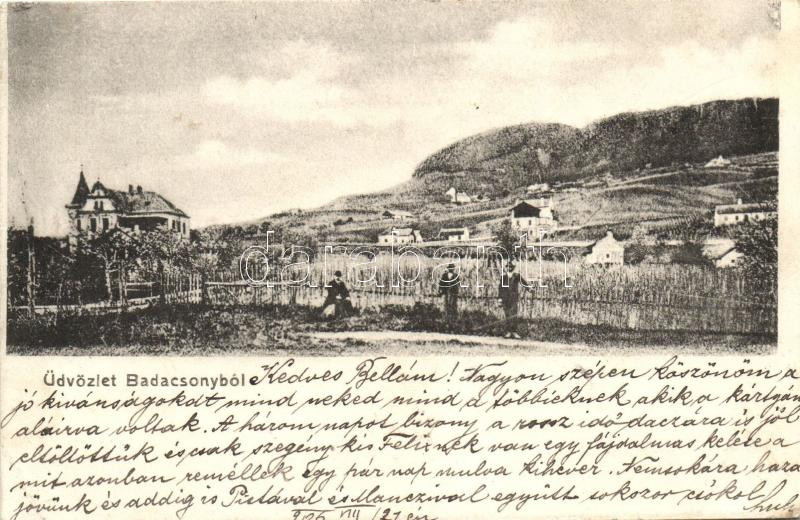 darabanth
Üdvözlet Badacsonyból Kedves Bellám! Nagyon szépen köszönöm a
jó kivánságokat mind neked mind a többieknek akik a kártyán
aláirva voltak. A három napot bizony a rossz idő daczára is jól
eltöltöttük és csak szegény kis Felixnek van egy fájdalmas kelése a
mit azonban reméllek egy par nap mulva kihever. Nemsokára haza
jövünk és addig is Pistával és Manczival együtt sokszor csókol
906 VII/21 én